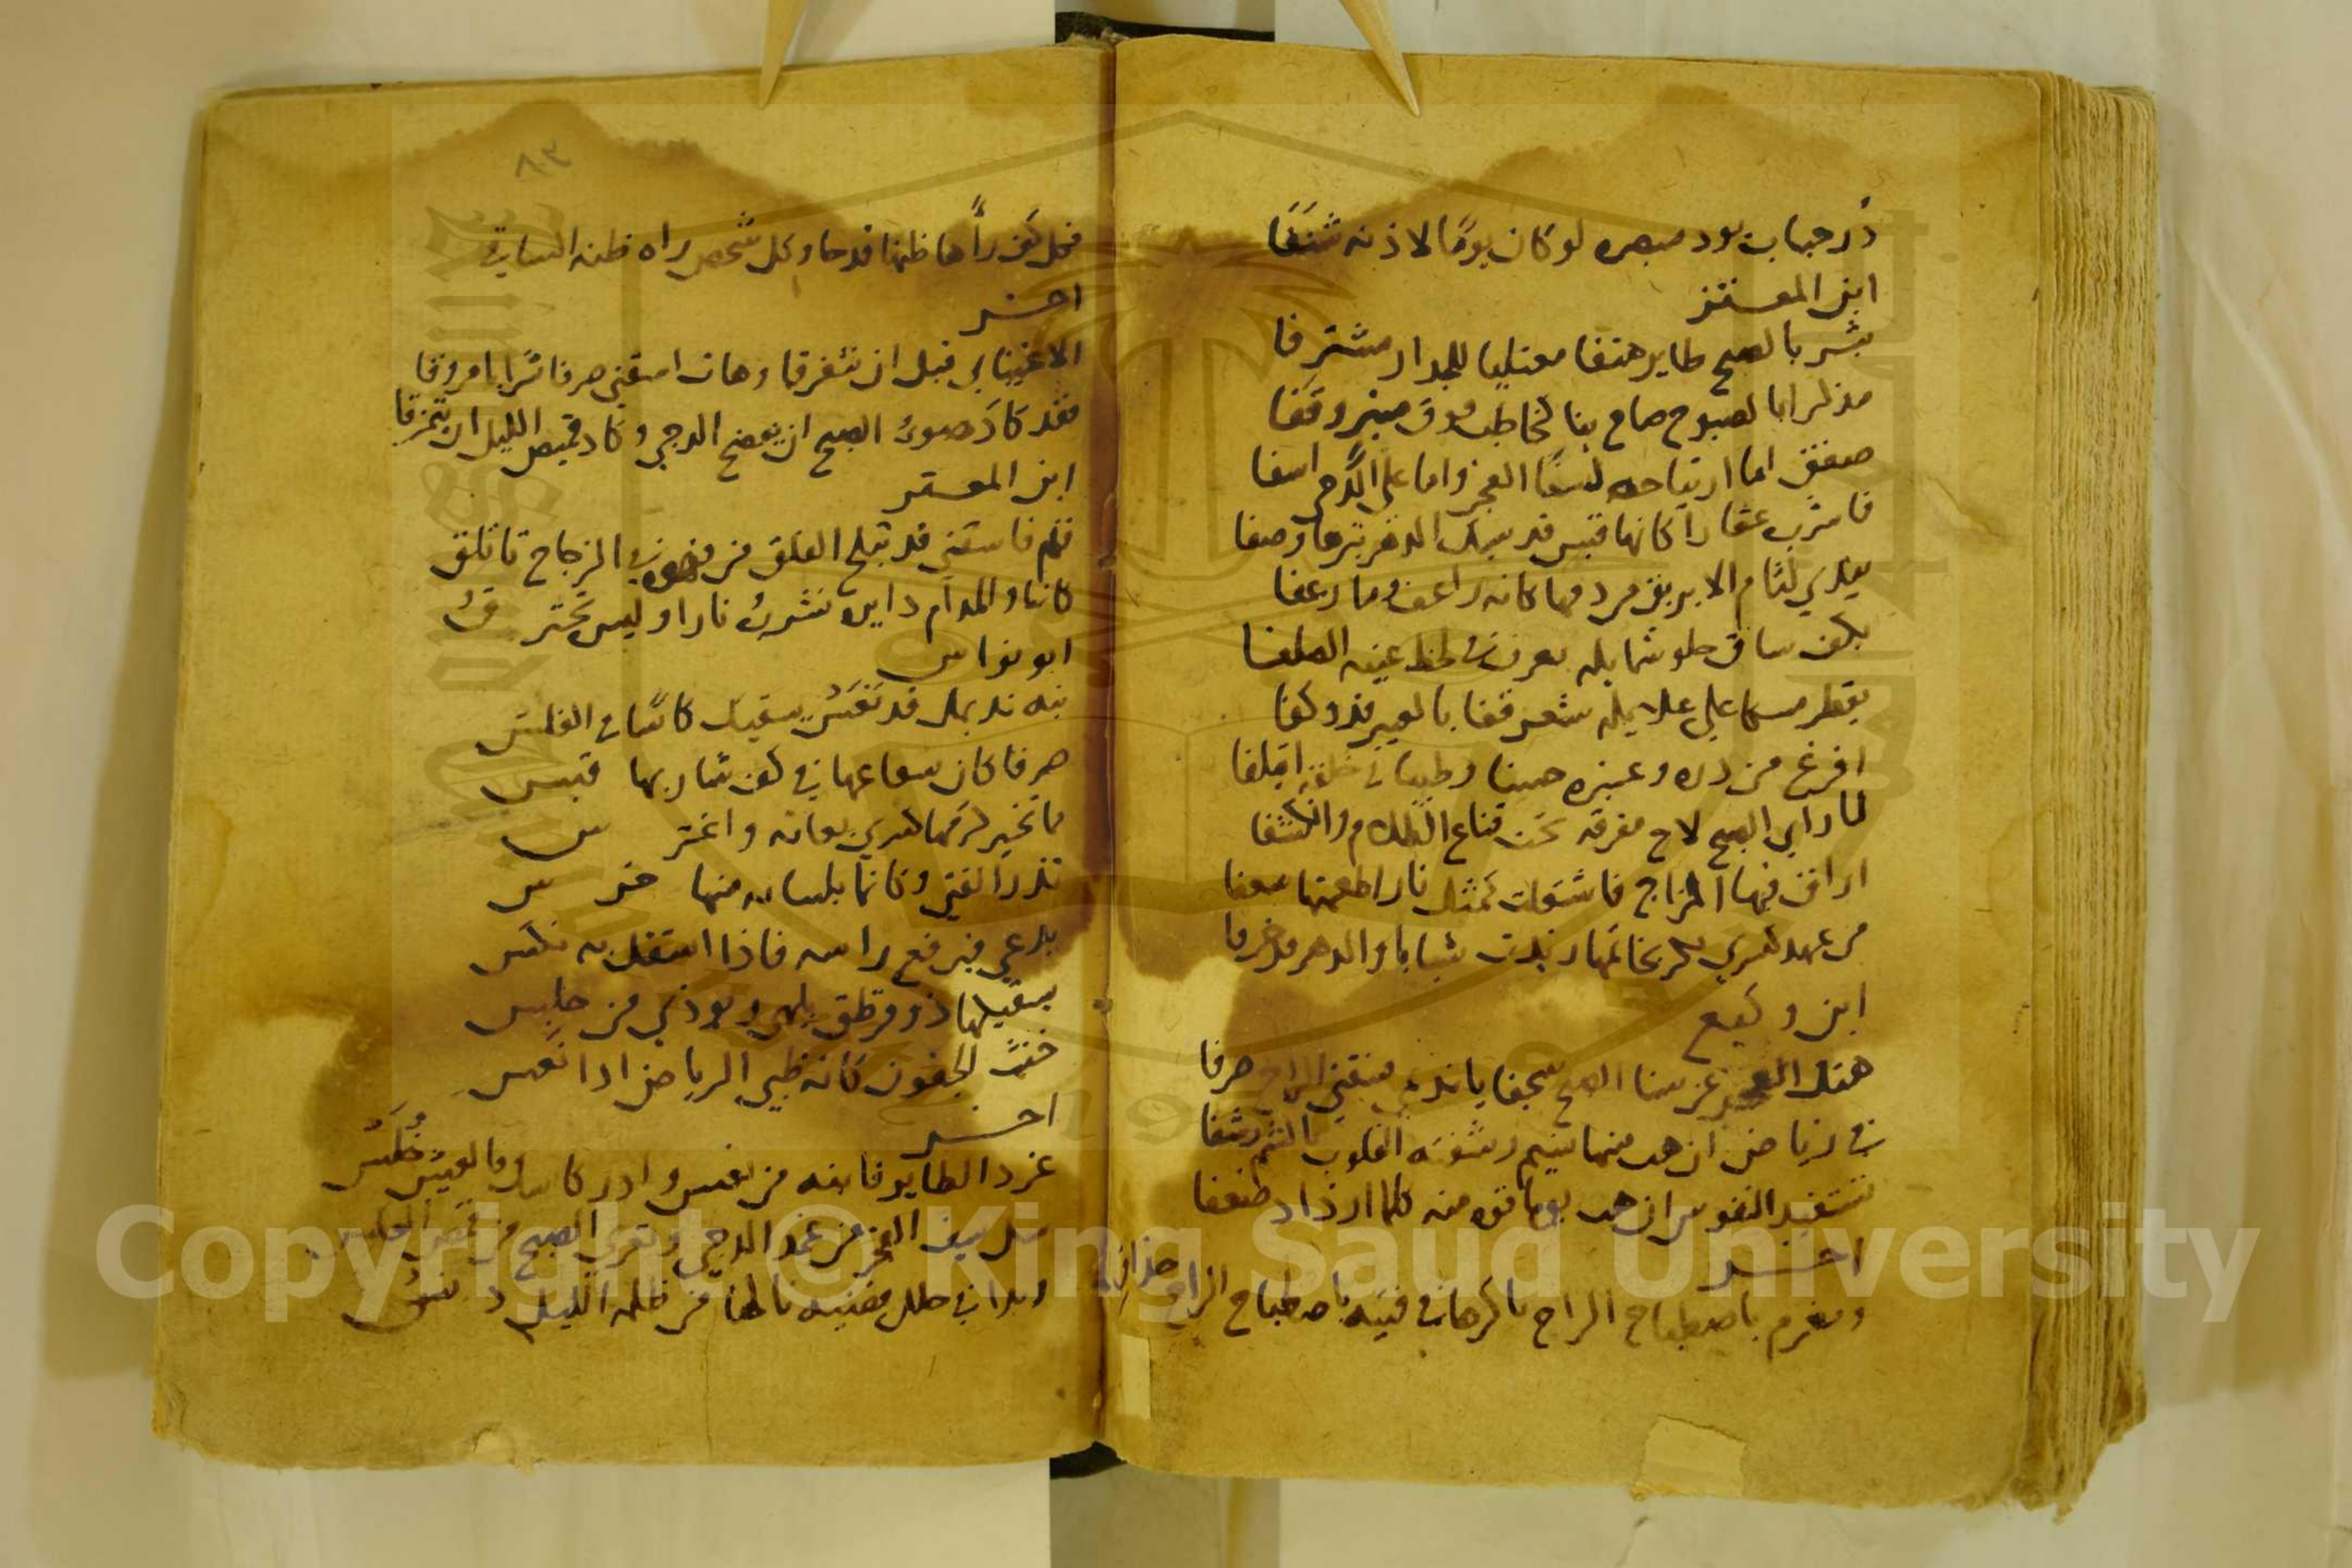 در حباب يود مبصره لو كان يومًا لاذنه شنفا
ابن المعتز
بشر بالصبح طاير هتفا معتليا للجدار مشترفا
مذكرا بالصبوح صاح بنا كخاطب فوق منبر وقفا
صفق اما ارتياحه لسنا الفجر واما على الدجى اسفا
فاشرب عقارا كانها قبس قد سبك الدهر تبرها وصفا
يعدي لثام الابريق من دمها كانه راعف وما رعفا
بكف ساق حلو شمايله يعرف في لحظ عينه الصلفا
يقطر مسكا على غلايله شعر قفا بالعبير قد وكفا
افرغ من دره وعنبره حسنا وطيبا في خلقه ائتلفا
لما راي الصبح لاح مفرقه تحت قناع الظلام وانكشفا
اراق فيها المزاج فاشتعلت كمثل نار اطعمتها سعفا
من عهد كسري بكر بخاتمها ردت شبابا والدهر قد خرفا
ابن وكيع
هتك الفجر عن سنا الصبح سجفا يا نديمي سقني الراح صرفا
في رياض ان هب منها نسيم رشفته القلوب بالشم رشفا
تستفيد النفوس ان هب يوما قوه منه كلما ازداد ضعفا
اخر
ومغرم باصطباح الراح باكرها في فتيه باصطباح الراح حذاق
فكل كف رأها ظنها قدحا وكل شخص راه ظنه الساقي
٨٣
اخر
الا غنياني قبل ان نتفرقا وهات اسقني صرفا شرابا مروقا
فقد كاد ضوء الصبح ان يفضح الدجي وكاد قميص الليل ان يتمزقا
ابن المعتز
قم فاسقني قد تبلج الفلق من قهوه في الزجاج تاتلق
كاننا والمدام دايره نشرب نارا وليس نحترق
ابو نواس
نبه نديمك قد نعس يسقيك كاسا في الغلس
صرفا كان شعاعها في كف شاربها قبس
مما تخير كرمها كسري بعانه واغترس
تذر الفتي وكانما بلسانه منها خرس
يدعي فيرفع راسه فاذا استقل به نكس
يسقيكها ذو قرطق يلهي ويوذي من جلس
خنث الجفون كانه ظبي الرياض اذا نعس
اخر
غرد الطاير فانبه من نعس وادر كاسك فالعيش خلس
سل سيف الفجر من غمد الدجي وتعري الصبح من قمص الغلس
وبدا في حلل فضيه نالها من ظلمه الليل دنس
Copyright © King Saud University